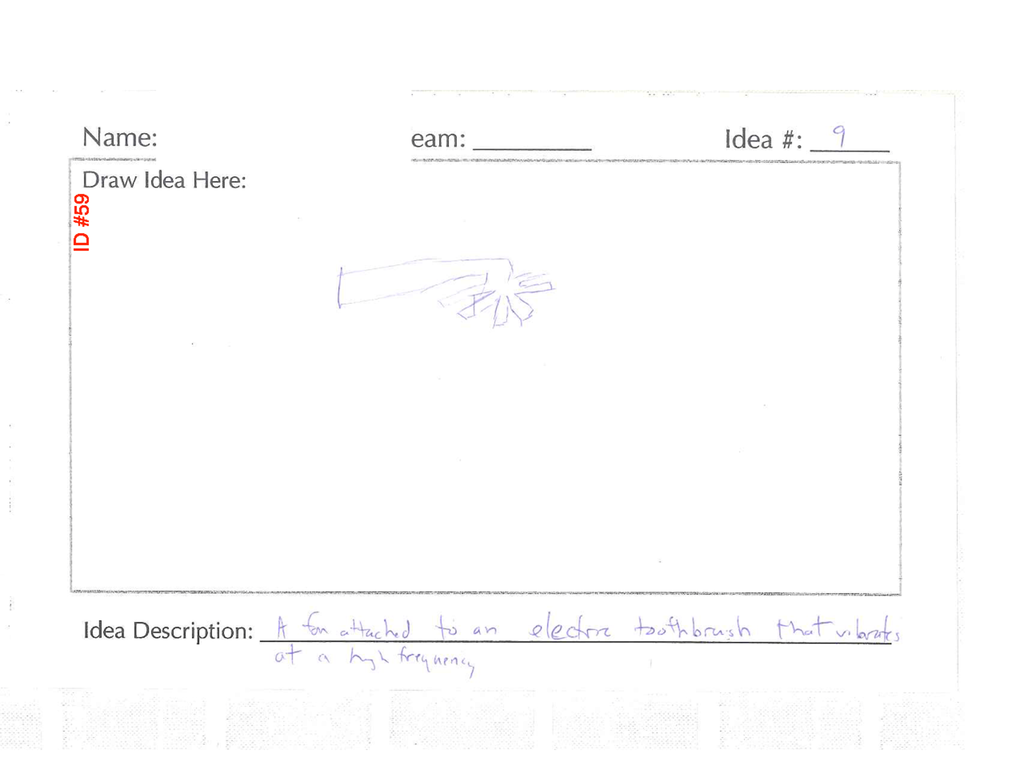 Name: eam: Idea #: 9
Draw Idea Here:
ID #59
Idea Description: A fan attached to an electric toothbrush that vibrates
at a high frequency